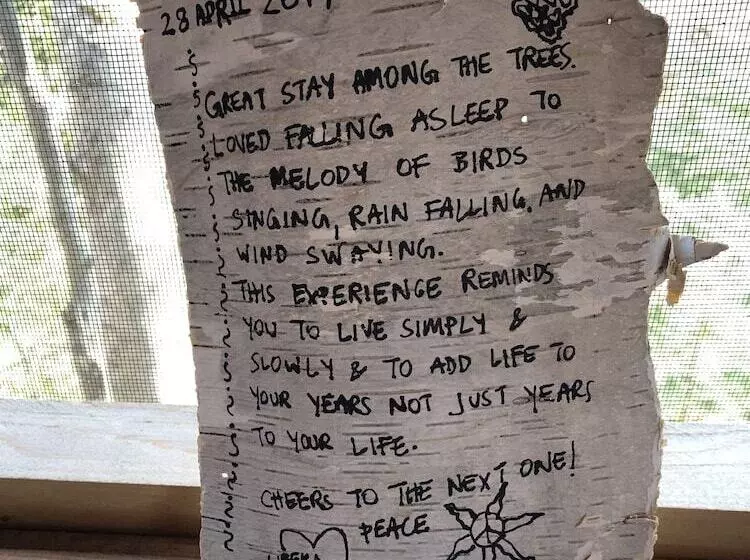 28 APRIL
GREAT STAY AMONG THE TREES.
LOVED FALLING ASLEEP TO
THE MELODY OF BIRDS
SINGING, RAIN FALLING, AND
WIND SWAYING.
THIS EXPERIENCE REMINDS
YOU TO LIVE SIMPLY &
SLOWLY & TO ADD LIFE TO
YOUR YEARS NOT JUST YEARS
TO YOUR LIFE.
CHEERS TO THE NEXT ONE!
PEACE